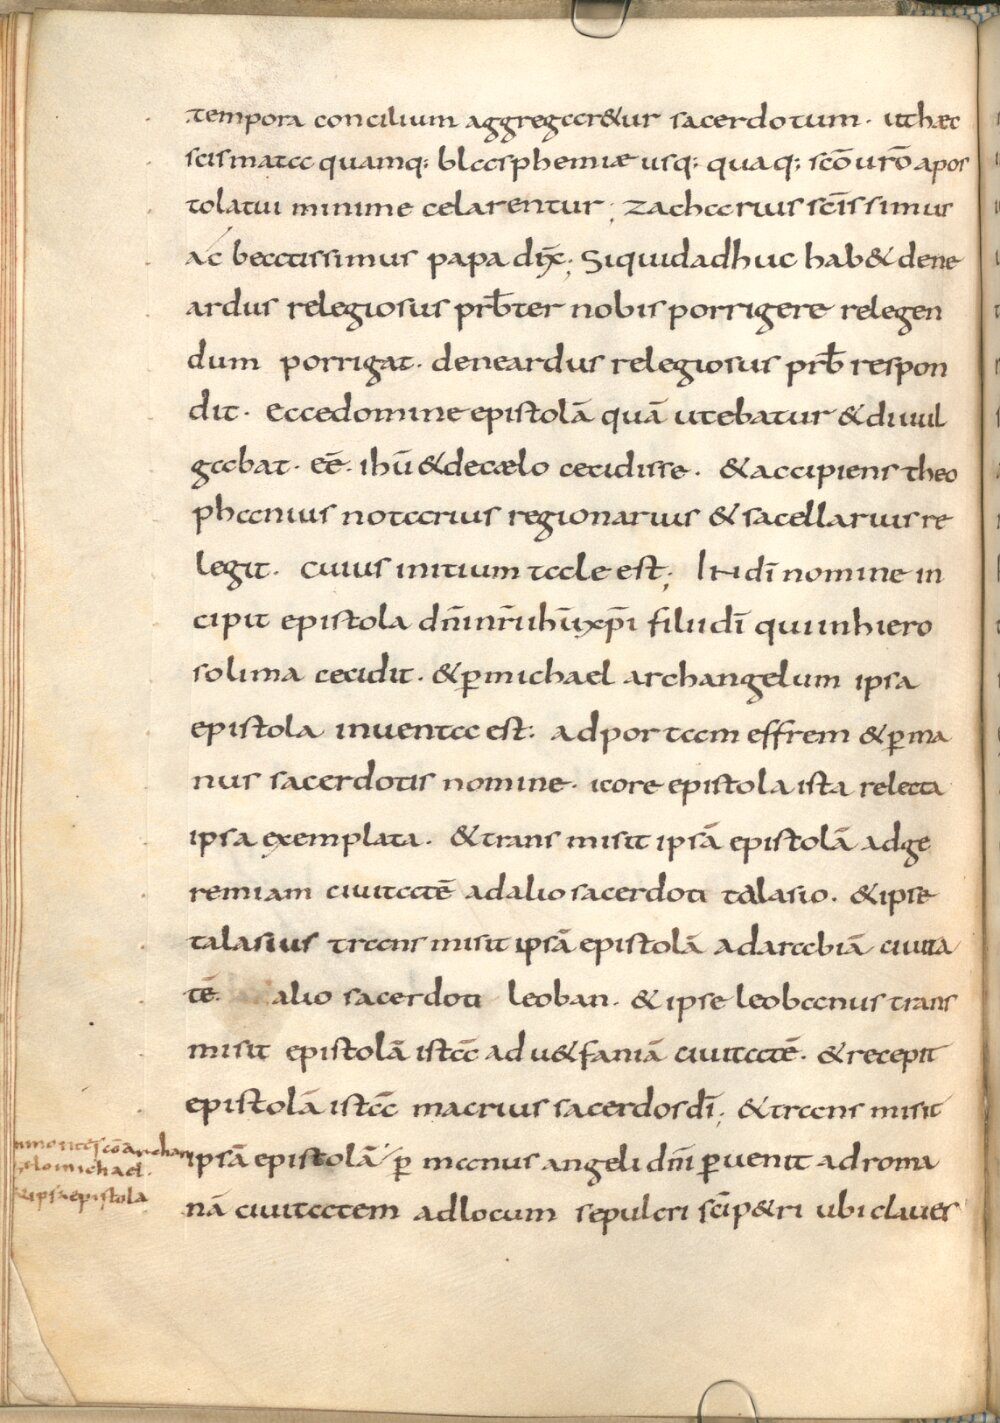 tempora concilium aggregar&ur sacerdotum · ut hæc
scismata quamq; blasphemiæ usq; quaq; scō urō apos
tolatui minime celarentur; zacharius scīssimus
ac beatissimus papa dix̄; Siquid adhuc hab& dene
ardus relegiosus prb̄ter nobis porrigere relegen
dum porrigat · deneardus relegiosus prb̄ respon
dit · Ecce domine epistolā quā utebatur & diuul
gabat · eē · ihū & de cælo cecidisse · & accipiens theo
phanius notarius regionarius & sacellarius re
legit · cuius initium tale est; IN dī nomine in
cipit epistola dn̄i nr̄i ihū xp̄i filii dī qui in hiero
solima cecidit · & p̄ michael archangelum ipsa
epistola inuenta est: ad portam effrem & p̄ ma
nus sacerdotis nomine · icore epistola ista relecta
ipsa exemplata · & trans misit ipsā epistolā ad ge
remiam ciuitatē ad alio sacerdoti talasio · & ipse
talasius trans misit ipsā epistolā ad arabiā ciuita
tē alio sacerdoti leoban · & ipse leobanus trans
misit epistolā istā ad u&faniā ciuitatē · & recepit
epistolā istā macrius sacerdos dī; & trans misit
in monte scō archan
gelo michael ·
& ipsa epistola
ipsā epistolā p̄ manus angeli dn̄i p̄uenit ad roma
nā ciuitatem ad locum sepulcri scī p&ri ubi claues